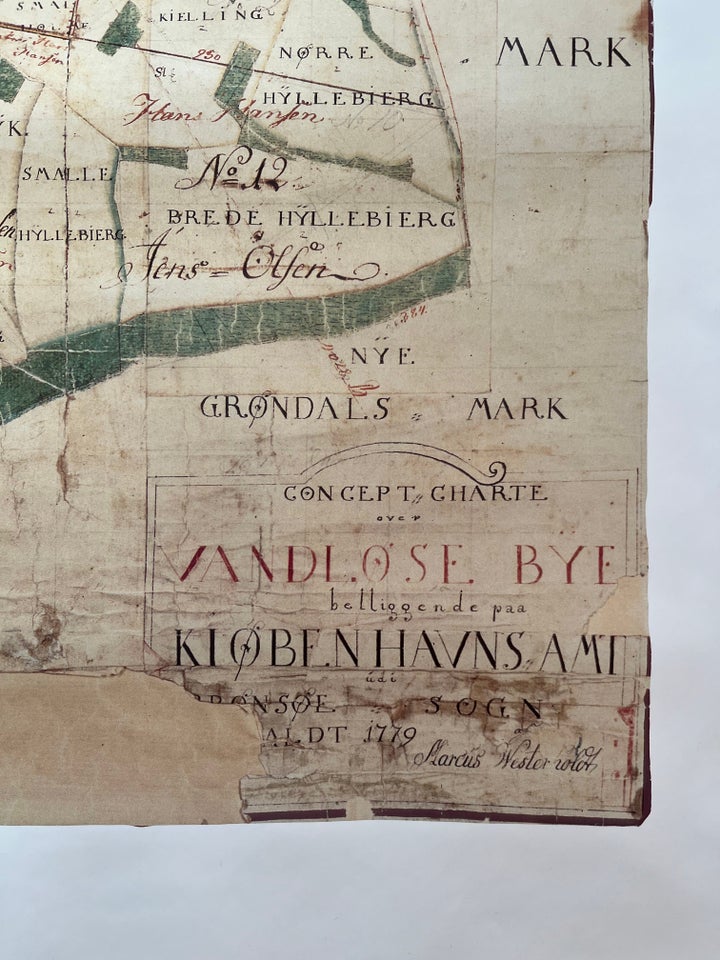 SMAL
KIELLING
NØRRE
MARK
250
Sl
HŸLLEBIERG
Hans Hansen
No 10
SMALLE
No 12.
HŸLLEBIERG
BREDE HŸLLEBIERG
Jens = Olsen
NŸE
GRØNDALS MARK
CONCEPT CHARTE
over
VANDLØSE BŸE
belliggende paa
KIØBENHAVNS AMT
üdi
BRØNSØE SOGN
ALDT 1779
af
Marcus Westerwoldt